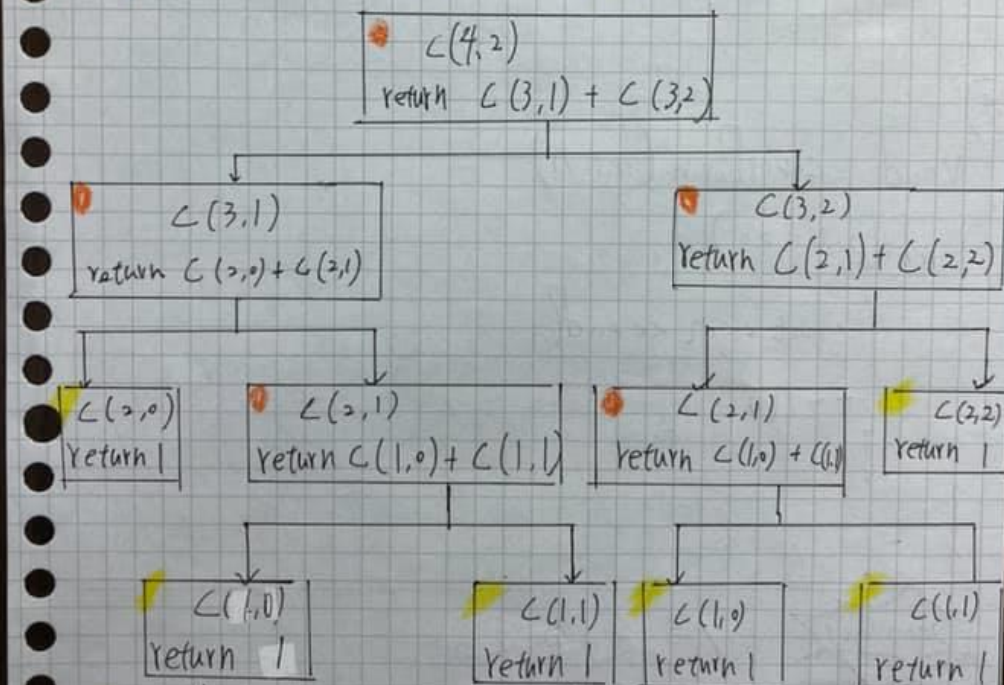 C(4,2)
return C(3,1) + C(3,2)
C(3,1)
return C(2,0) + C(2,1)
C(3,2)
return C(2,1) + C(2,2)
C(2,0)
return 1
C(2,1)
return C(1,0) + C(1,1)
C(2,1)
return C(1,0) + C(1,1)
C(2,2)
return 1
C(1,0)
return 1
C(1,1)
return 1
C(1,0)
return 1
C(1,1)
return 1